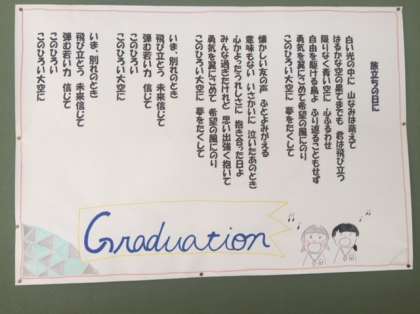 旅立ちの日に
白い光の中に 山なみは萌えて
はるかな空の果てまでも 君は飛び立つ
限りなく青い空に 心ふるわせ
自由を駆ける鳥よ ふり返ることもせず
勇気を翼にこめて 希望の風にのり
このひろい大空に 夢をたくして
懐かしい友の声 ふとよみがえる
意味もない いさかいに 泣いたあのとき
心かよったうれしさに 抱き合った日よ
みんな過ぎたけれど 思い出強く抱いて
勇気を翼にこめて 希望の風にのり
このひろい大空に 夢をたくして
いま、別れのとき
飛び立とう 未来信じて
弾む若い力 信じて
このひろい
このひろい大空に
いま、別れのとき
飛び立とう 未来信じて
弾む若い力 信じて
このひろい
このひろい大空に
Graduation